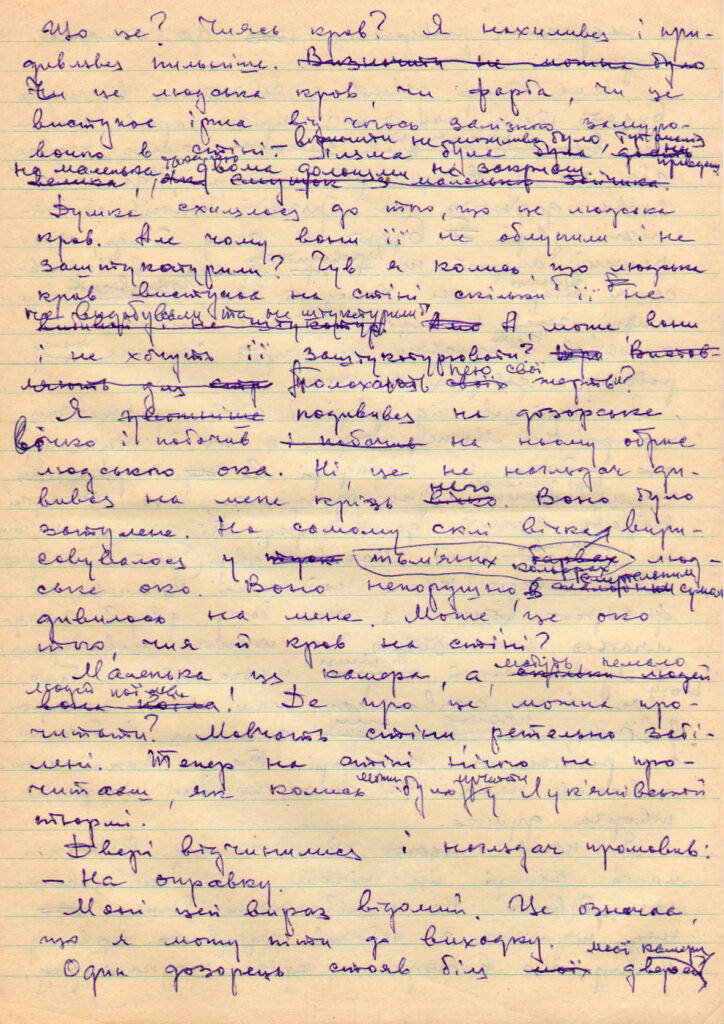 Що це? Чиясь кров? Я нахилився і при-
дивлявся пильніше. Визначити не можна було
Чи це людська кров, чи фарба, чи це
виступає іржа від чогось залізного замуро-
ваного в стіні. – визначити неможливо було,
Пляма була
на маленька, двома долонями не закриєш.
велика,
Думка схилялась до того, що це людська
кров. Але чому вони її не облупили і не
заштукатурили? Чув я колись, що людська
кров виступала на стіні скільки б її не
видобували та не штукатурили
А може вони
і не хочуть її заштукатурювати? Вистав-
ляють для Полохають нею свої жертви?
Я подивився на дозорське
вічко і побачив і побачив на ньому обрис
людського ока. Ні, це не наглядач ди-
вився на мене крізь нього вічко. Воно було
затулене. На самому склі вічка вири-
совувалося у тьмяних барвах кольорах люд-
ське око. Воно непорушно з смертельним сумом
дивилось на мене. Може, це око
того, чия й кров на стіні?
Маленька ця камера, а скільки людей
немало
людей вона ! Де про це можна про-
читати? Мовчать стіни ретельно забі-
лені. Тепер на стіні нічого не про-
читаєш, як колись можна було прочитати у Лук'янівській
тюрмі.
Двері відчинилися і наглядач промовив:
– На оправку.
Мені цей вираз відомий. Це означає,
що я можу піти до виходку.
Один дозорець стояв біля моїх моєї камери дверей